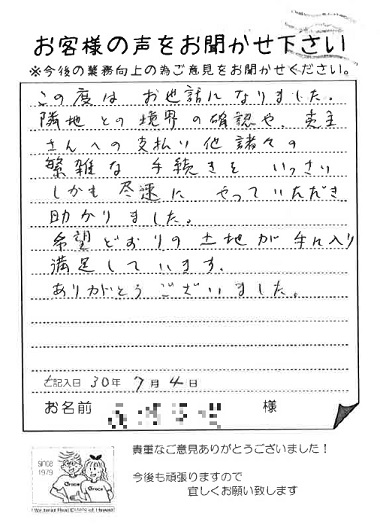 お客様の声をお聞かせ下さい
※今後の業務向上の為ご意見をお聞かせください。
この度は お世話になりました。
隣地との境界の確認や、売主
さんへの支払い他諸々の
繁雑な手続きを いっさい
しかも 尽速に やっていただき
助かりました。
希望どおりの土地が手に入り
満足しています。
ありがとうございました。
ご記入日 30年 7月 4日
お名前 様
SINCE
1979
Grace
Grace
貴重なご意見ありがとうございました！
今後も頑張りますので
宜しくお願い致します